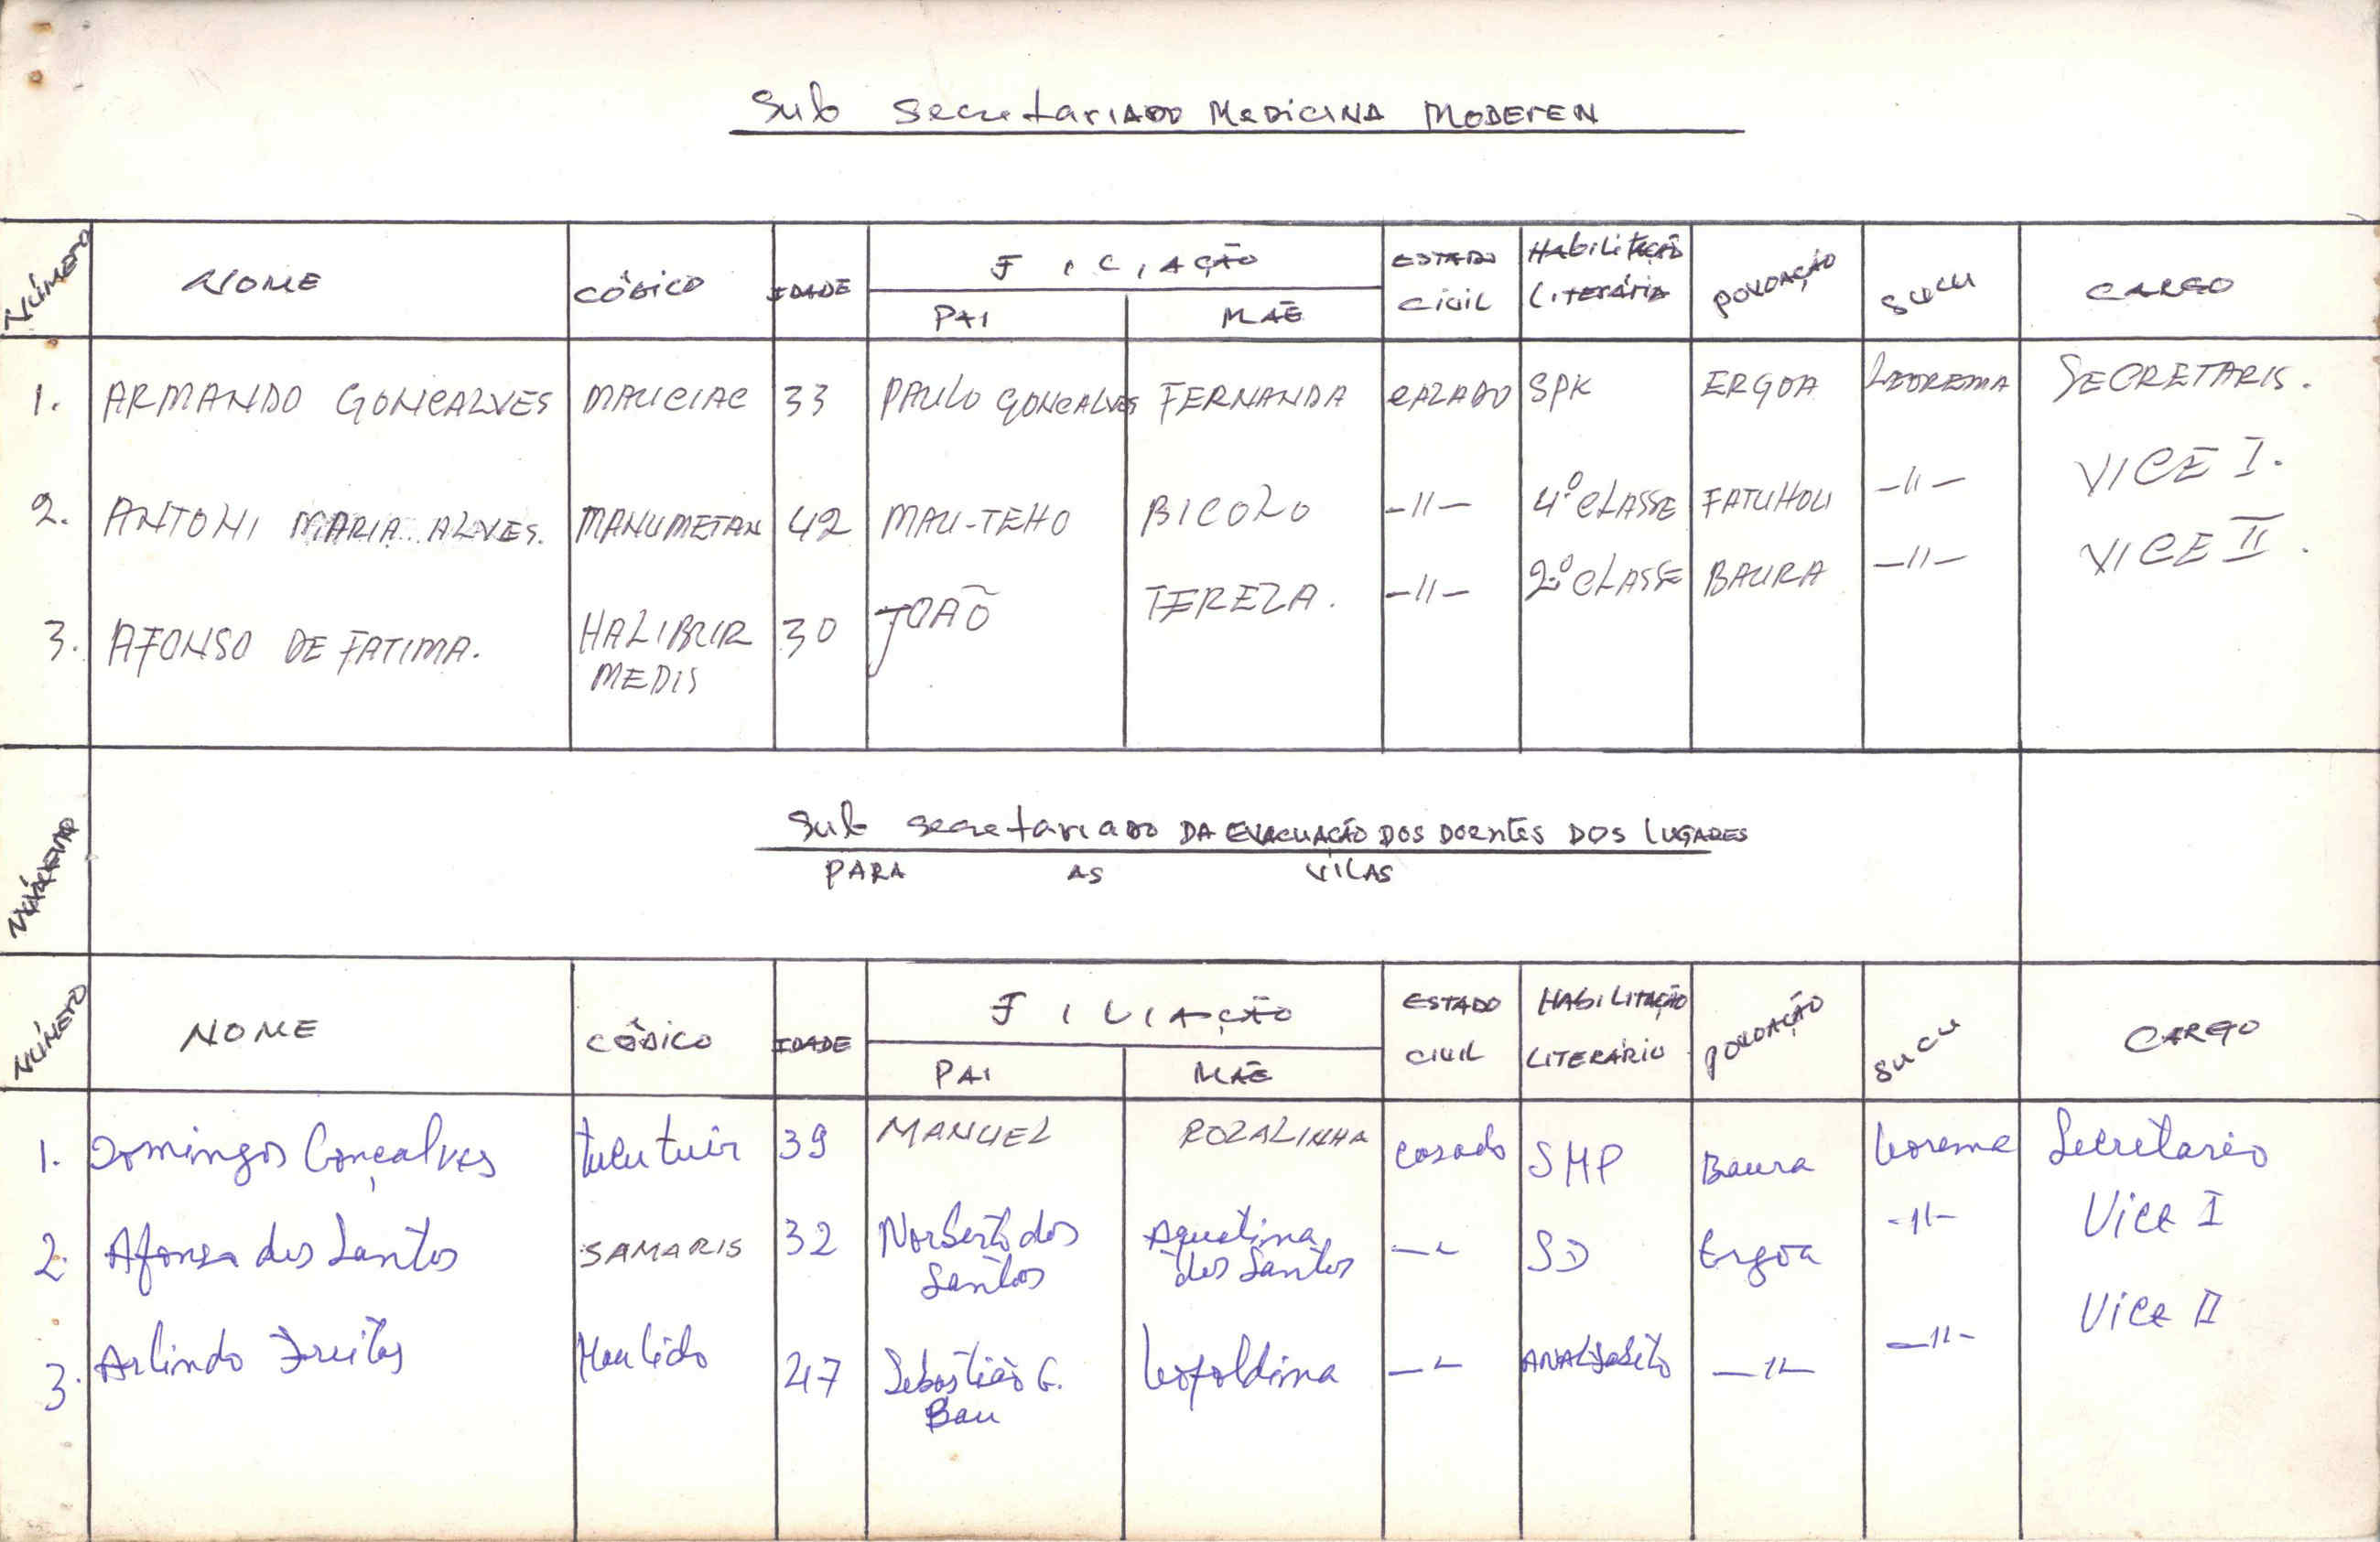 Sub secretariado Medicina Moderen
Número NOME CÓDICO IDADE FILIAÇÃO ESTADO CIVIL Habilitação Literária POVOAÇÃO SUCU CARGO
PAI MÃE
1. ARMANDO GONCALVES MAUCIAC 33 PAULO GONCALVES FERNANDA CAZADO SPK ERGOA LEOREMA SECRETARIS.
2. ANTONI MARIA ALVES. MANUMETAN 42 MAU-TEHO BICOLO -11- 4º CLASSE FATUHOLI -11- VICE I.
3. AFONSO DE FATIMA. HALIBUR MEDIS 30 JOAÕ TEREZA. -11- 2º CLASSE BAURA -11- VICE II.
Sub secretariado DA EVACUAÇÃO DOS DOENTES DOS LUGARES
PARA AS VILAS
Número NOME CÓDICO IDADE FILIAÇÃO ESTADO CIVIL HABILITAÇÃO LITERÁRIO POVOAÇÃO SUCU CARGO
PAI MÃE
1. Domingos Gonçalves tulu tuir 39 MANUEL ROZALINHA Casado SMP Baura Leorema Secretario
2. Afonso dos Santos SAMARIS 32 Norberto dos Santos Agustina dos Santos -11- SD Ergoa -11- Vice I
3. Arlindo Freitas 47 Sebastião G. Bau Leopoldina -11- ANALfabeto -11- -11- Vice II